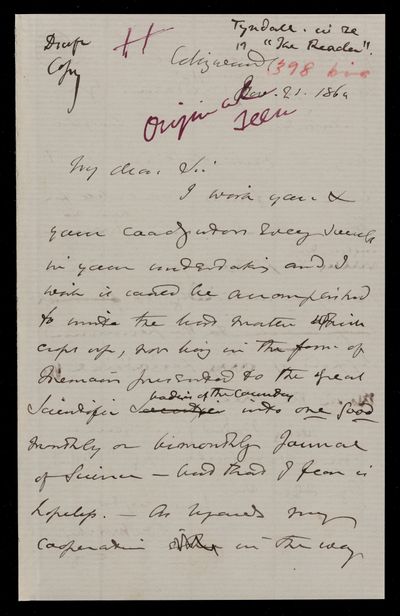 Draft
Copy
H
Tyndall. in re
"The Reader".
Collingwood
398 bis
Nov. 21. 1864
Original
seen
My dear Sir
I wish you &
your coadjutors every success
in your undertaking and I
wish it could be accomplished
to unite the best matter which
crops up, now being in the form of
Memoirs presented to the great
bodies of the Country
Scientific into one good
monthly or bimonthly Journal
of Science – but that I fear is
hopeless. – As regards my
cooperation in the way